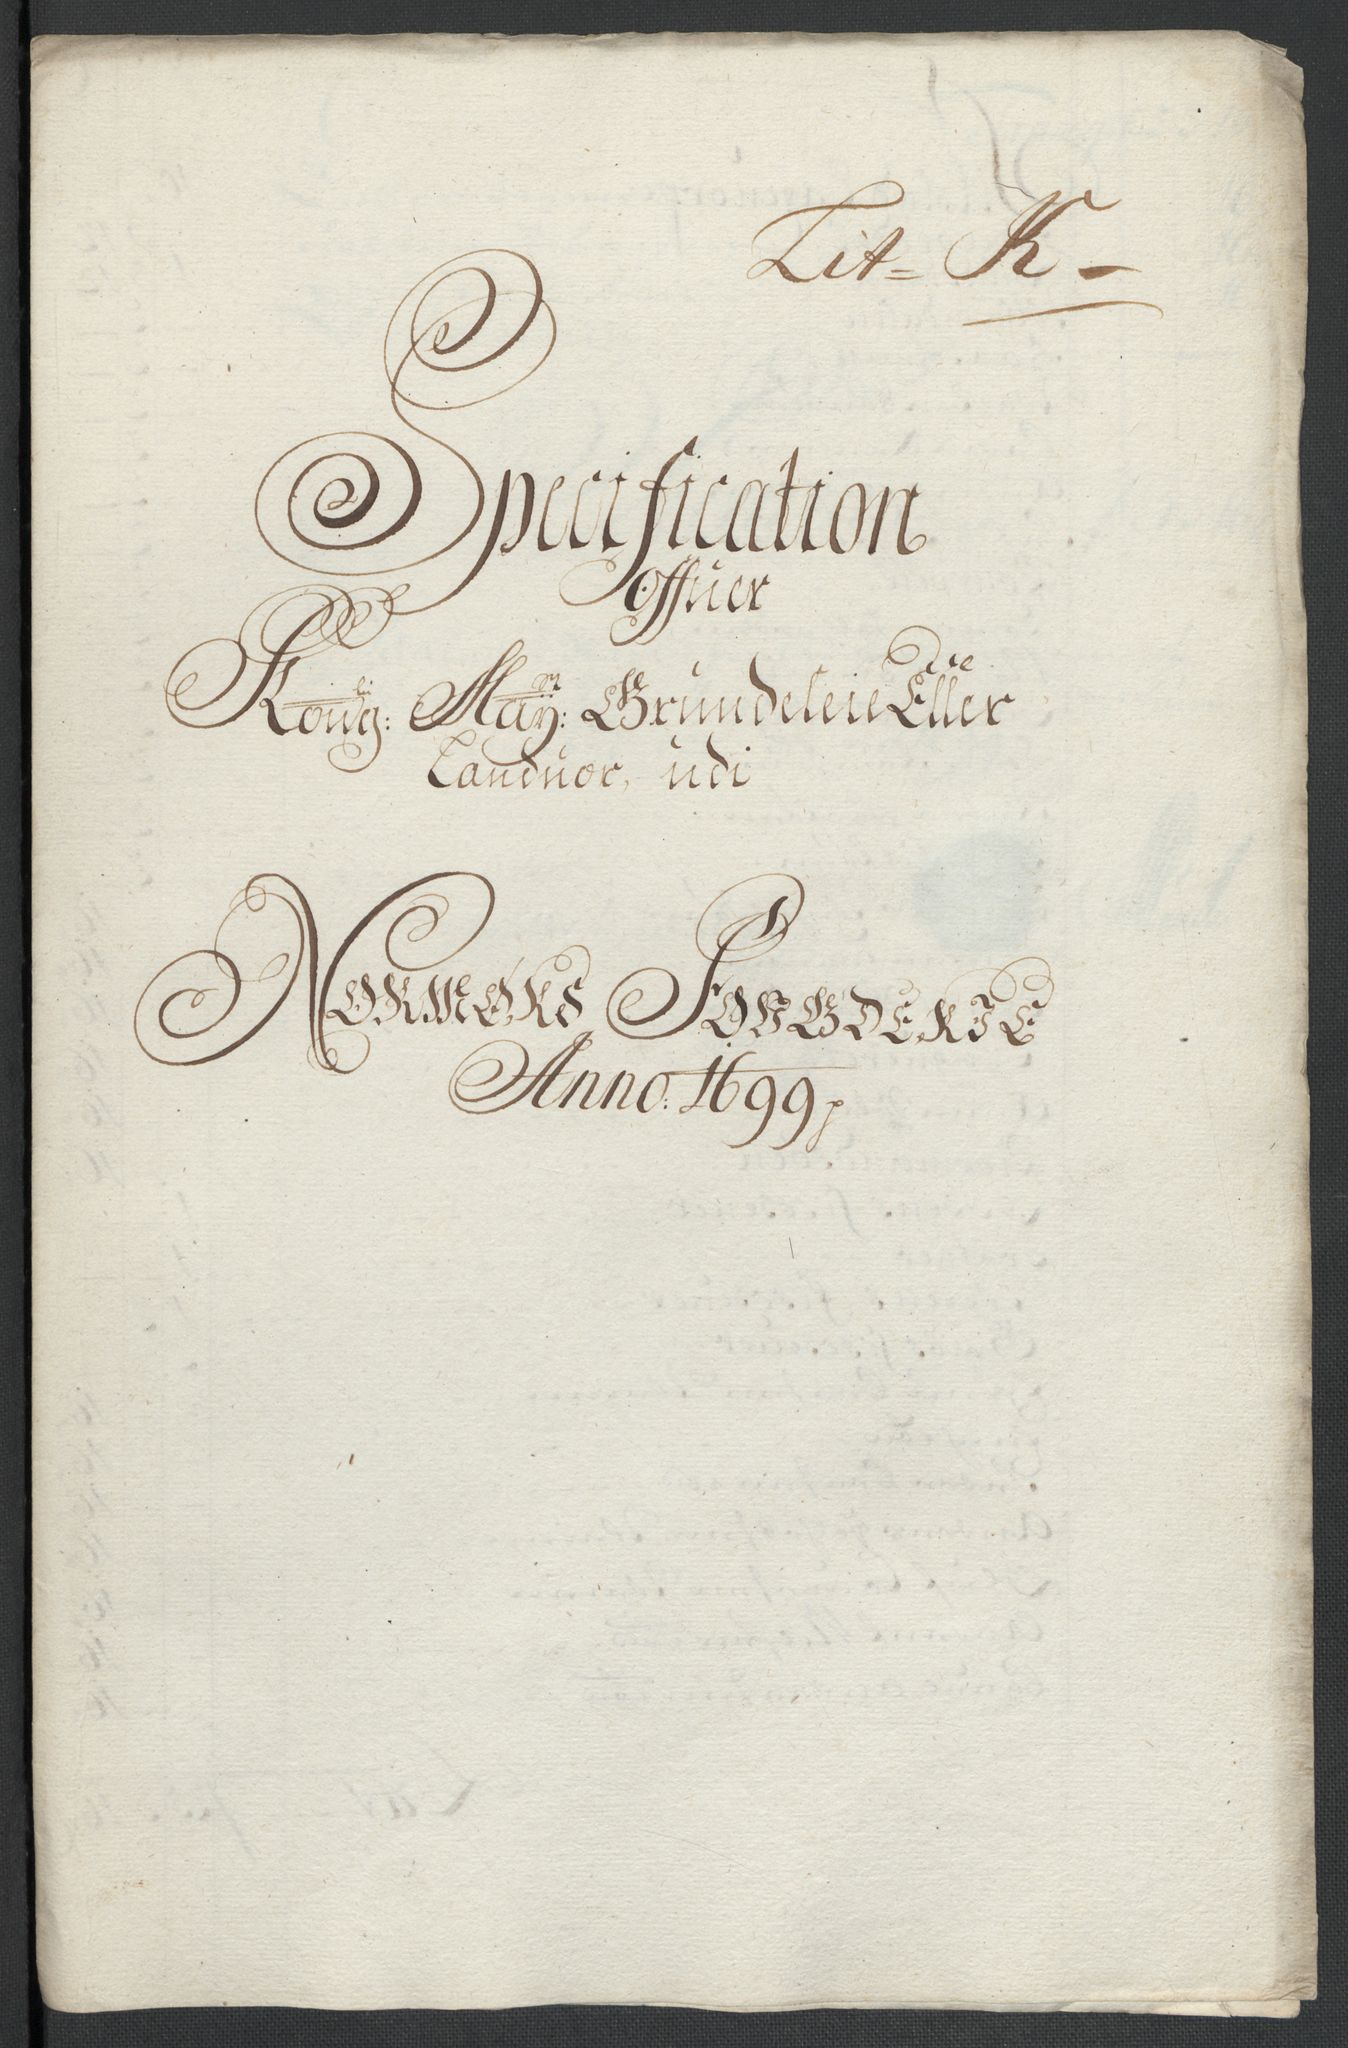 Lit= K-
Specification
Offuer
Kong: li May: tz Grundeleie Eller
Landuor, udi
NORMØRS FOGDERIE
Anno. 1699